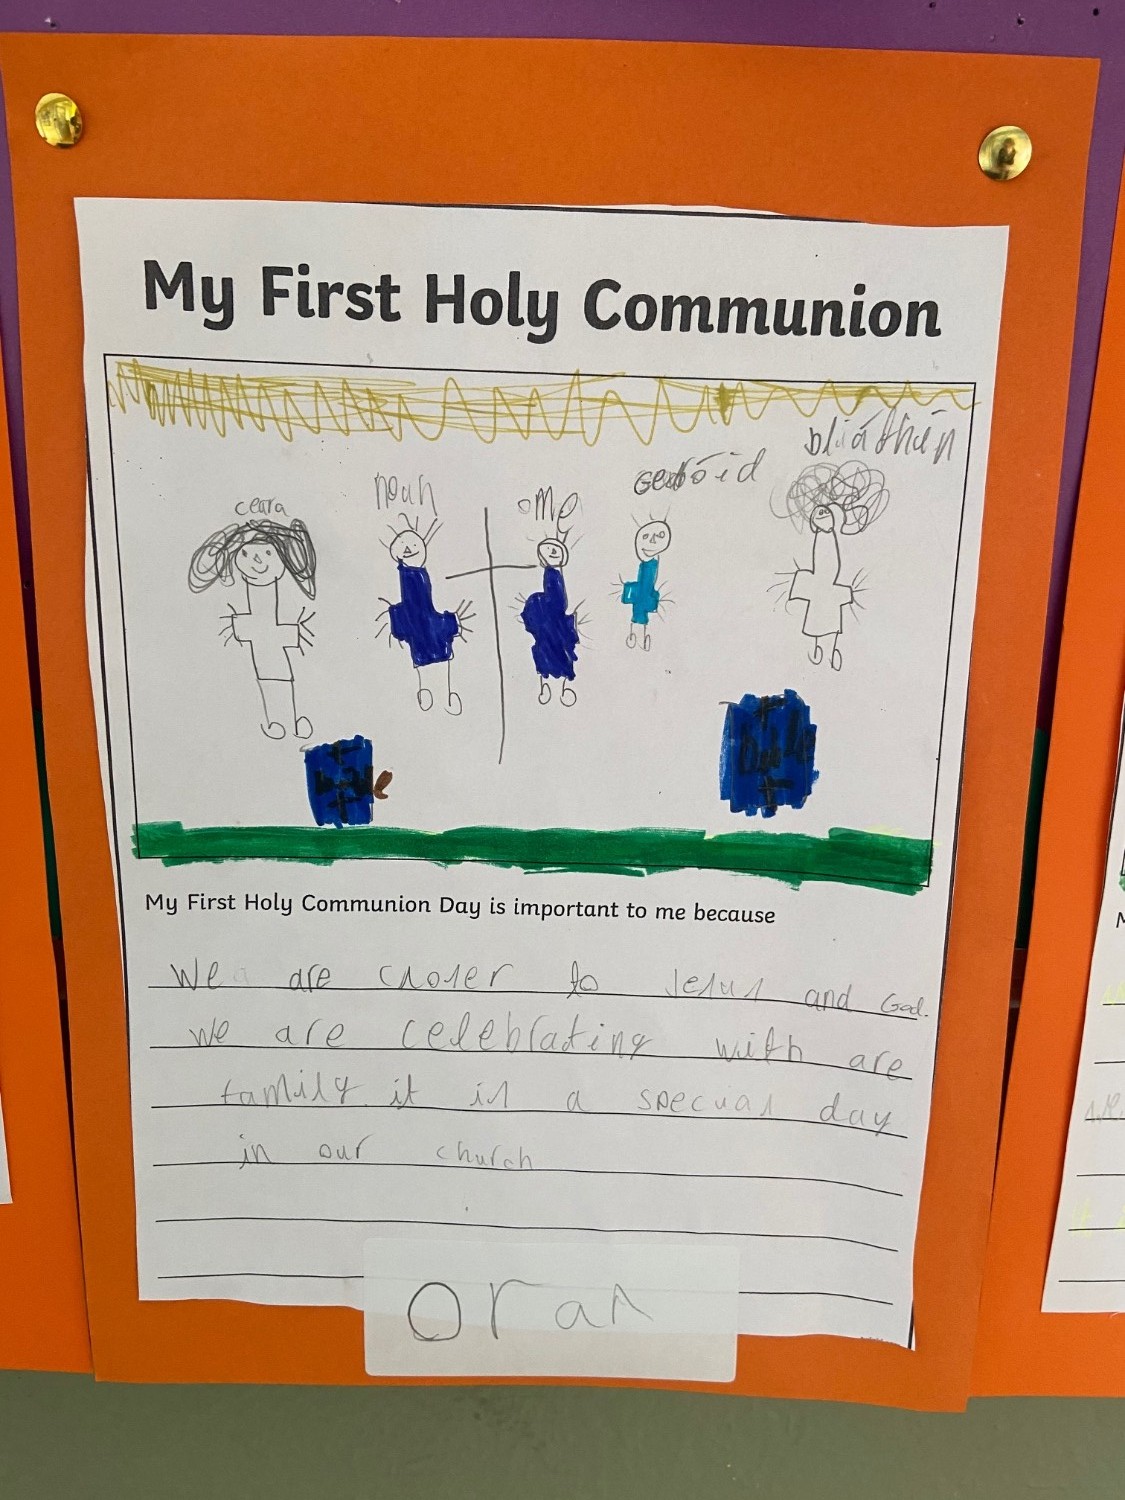 My First Holy Communion
bliáthín
noah
ceara
me
My First Holy Communion Day is important to me because
we are closer to Jesus and God.
we are celebrating with are
family it is a specual day
in our church
oran